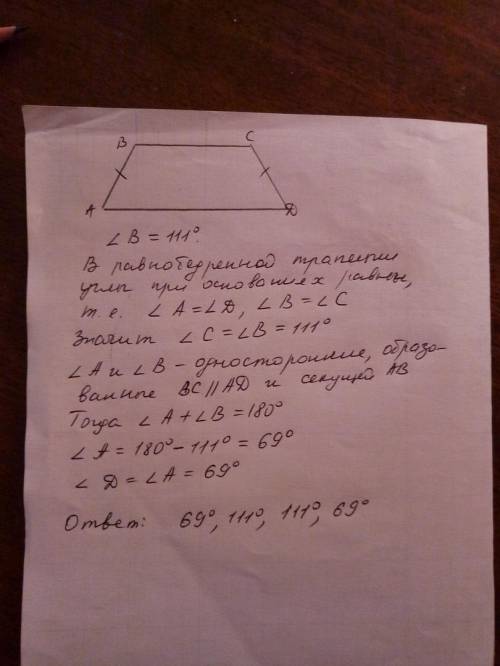 B C
A D
∠ B = 111°.
В равнобедренной трапеции
углы при основаниях равны,
т.е. ∠ A = ∠ D, ∠ B = ∠ C
Значит ∠ C = ∠ B = 111°
∠ A и ∠ B - односторонние, образо-
ванные BC || AD и секущей AB
Тогда ∠ A + ∠ B = 180°
∠ A = 180° - 111° = 69°
∠ D = ∠ A = 69°
Ответ: 69°, 111°, 111°, 69°